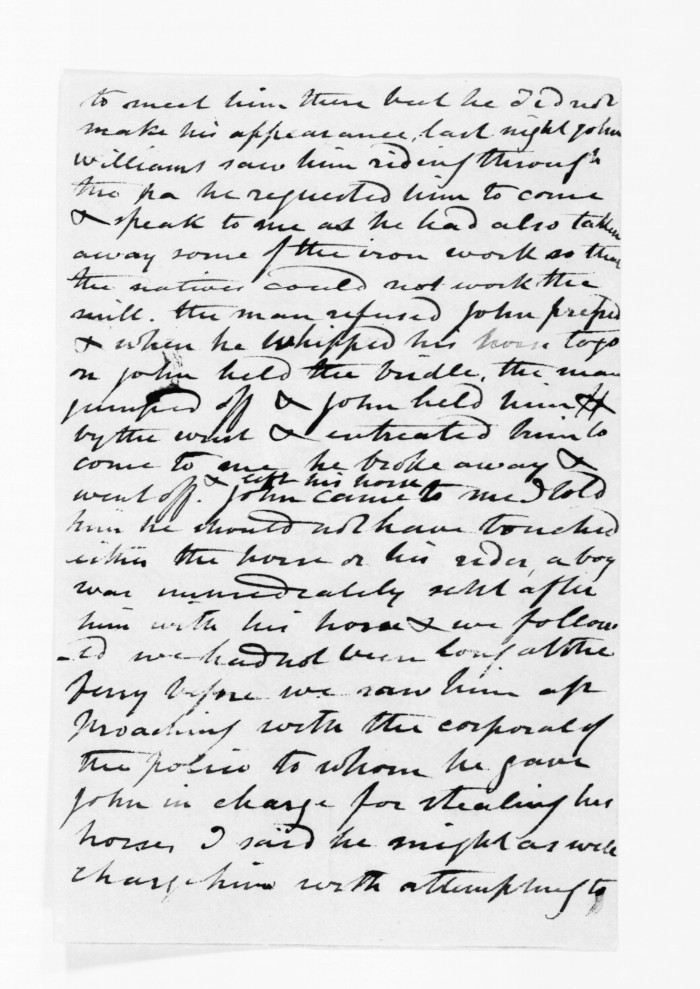 to meet him there but he did not
make his appearance, last night John
Williams saw him riding through
the pa he requested him to come
& speak to me as he had also taken
away some of the iron work so that
the natives could not work the
mill. the man refused John
& when he whipped his horse to go
on John held the bridle, the man
jumped off & John held him
by the waist & entreated him to
come to me, he broke away &
went off & left his horse John came to me I told
him he should not have touched
either the horse or his rider, a boy
was immediately sent after
him with his horse & we follow
-ed we had not been long at the
ferry before we saw him ap
proaching with the corporal of
the police to whom he gave
John in charge for stealing his
horse, I said he might as well
charge him with attempting to